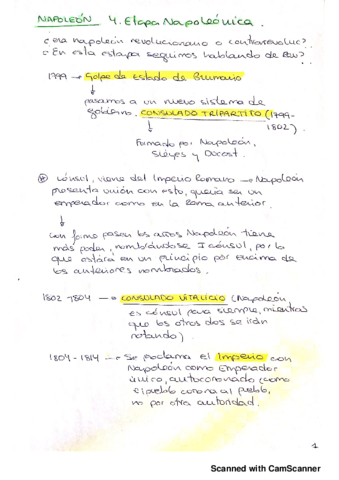 NAPOLEÓN 4. Etapa Napoleónica.
¿ era napoleón revolucionario o contrarevoluc?
¿ En esta estapa seguimos hablando de Rev?
1799 → Golpe de Estado de Brumario
pasamos a un nuevo sistema de
gobierno, CONSULADO TRIPARTITO (1799-
1802)
Formado por Napoleón,
Sieyes y Ducost.
cónsul, viene del Imperio Romano → Napoleón
presenta unión con esto, quería ser un
emperador como en la Roma anterior.
conforme pasan los años Napoleón tiene
más poder, nombrándose I cónsul, por lo
que estará en un principio por encima de
los anteriores nombrados.
1802-1804 → CONSULADO VITALICIO (Napoleón
es cónsul para siempre, mientras
que los otros dos se irán
rotando)
1804-1814 → Se proclama el Imperio con
Napoleón como Emperador
único, autocoronado (como
el pueblo corona al pueblo,
no por otra autoridad.
1
Scanned with CamScanner